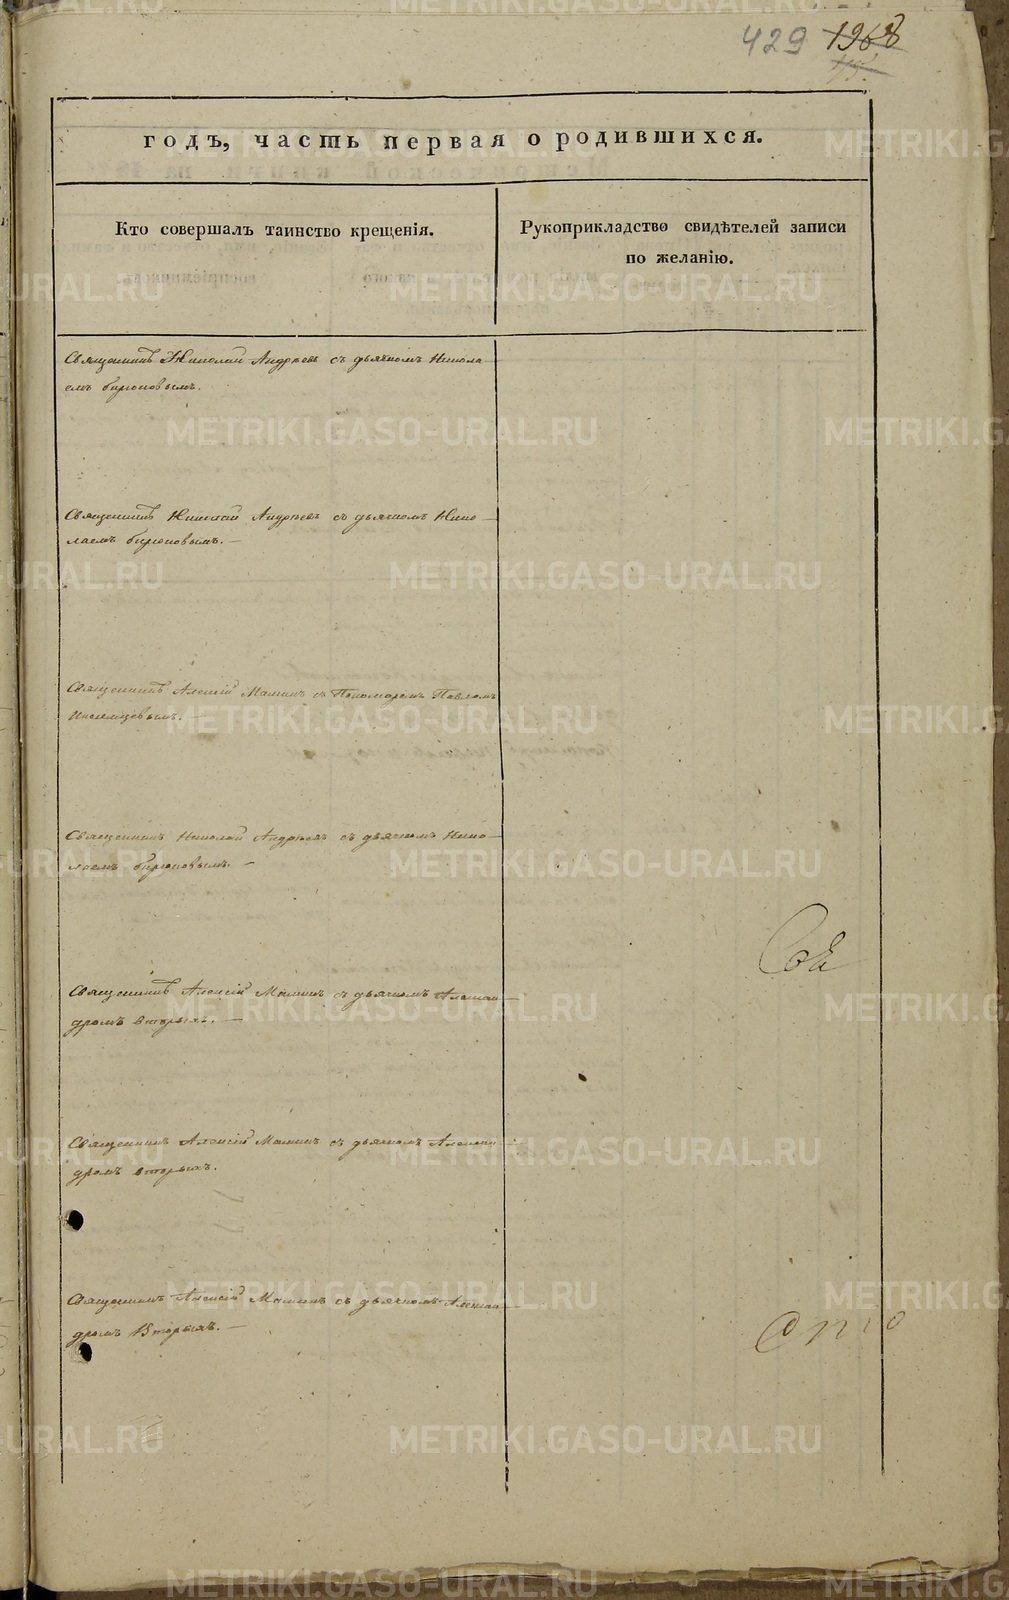 429 1968
годъ, часть первая о родившихся.
Кто совершалъ таинство крещенія.
Рукоприкладство свидѣтелей записи
по желанію.
Священникъ Николай Андреевъ съ дьячкомъ Никола
емъ Бирюковымъ.
Священникъ Николай Андреевъ съ дьячкомъ Нико—
лаемъ Бирюковымъ.—
Священникъ Алексій Маминъ съ Пономаремъ Павломъ
Иноземцовымъ.—
Священникъ Николай Андреевъ съ дьячкомъ Нико—
лаемъ Бирюковымъ.—
Священникъ Алексій Маминъ съ дьячкомъ Алексан—
дромъ Вторыхъ.—
Священникъ Алексій Маминъ съ дьячкомъ Алексан—
дромъ Вторыхъ.
Священникъ Алексій Маминъ съ дьячкомъ Алексан—
дромъ Вторыхъ.—
METRIKI.GASO-URAL.RU